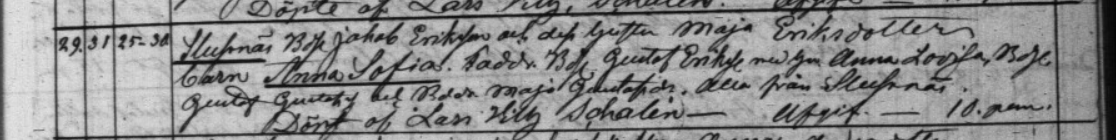 Döpte af Lars Schalen.
29. 31 25-30 Slussnäs Bd. Jakob Eriksson och dess hustru Maja Eriksdotter
barn Anna Sofia. Faddr. Bd. Gustaf Eriks med Anna Lovisa, Bd.
Gustaf Gustafs och Maja Gustafsdr. Alla från Slussnäs.
Döpt af Lars Vilh Schalén — Afgif. — 10. pen.